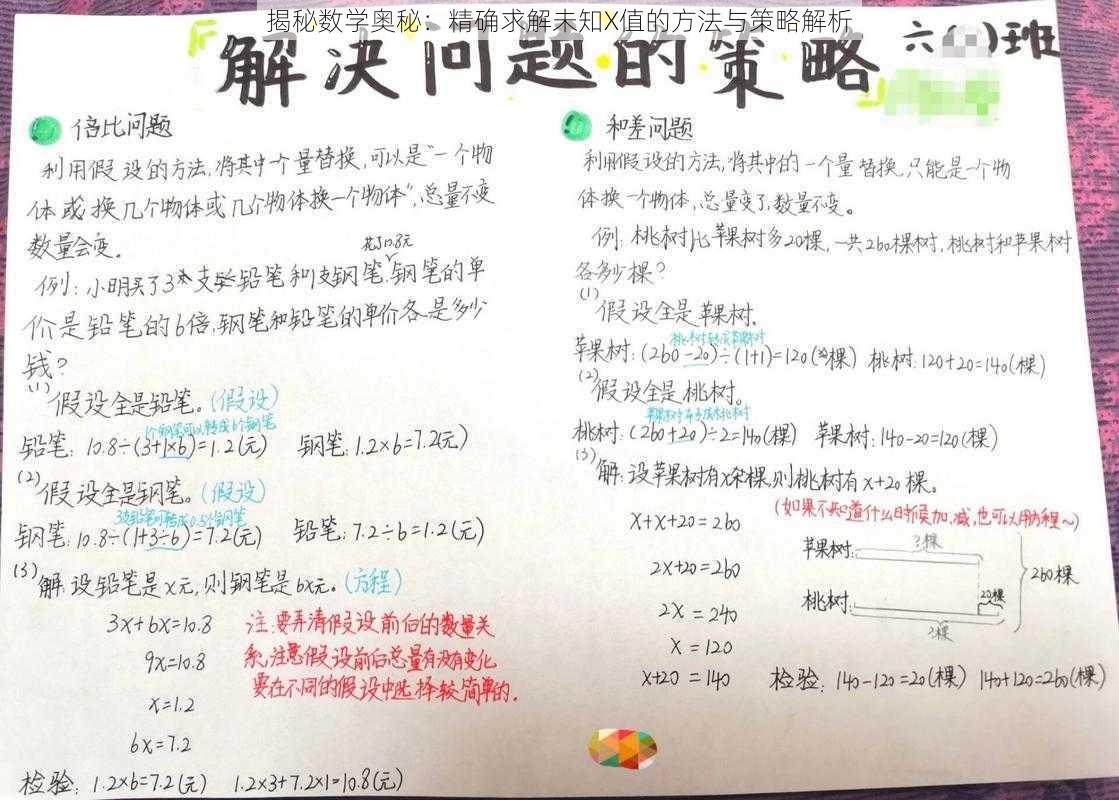 揭秘数学奥秘：精确求解未知X值的方法与策略解析
解决问题的策略
六( )班
倍比问题
利用假设的方法,将其中一个量替换,可以是"一个物
体或换几个物体或几个物体换一个物体",总量不变
数量会变。
共10.8元
例:小明买了3支铅笔和1支钢笔,钢笔的单
价是铅笔的6倍,钢笔和铅笔的单价各是多少
钱?
(1)假设全是铅笔。(假设)
铅笔:10.8÷(3+1×6)=1.2(元) 钢笔:1.2×6=7.2(元)
(2)假设全是钢笔。(假设)
3支铅笔可替成0.5支钢笔
钢笔:10.8÷(1+3÷6)=7.2(元) 铅笔:7.2÷6=1.2(元)
(3)解:设铅笔是x元,则钢笔是6x元。(方程)
3x+6x=10.8
9x=10.8
x=1.2
6x=7.2
检验:1.2×6=7.2(元) 1.2×3+7.2×1=10.8(元)
注:要弄清假设前后的数量关
系,注意假设前后总量有没有变化
要在不同的假设中选择较简单的.
和差问题
利用假设的方法,将其中的一个量替换,只能是一个物
体换一个物体,总量变了,数量不变。
例:桃树比苹果树多20棵,一共260棵树,桃树和苹果树
各多少棵?
(1)假设全是苹果树.
苹果树:(260-20)÷(1+1)=120(棵) 桃树:120+20=140(棵)
(2)假设全是桃树。
桃树:(260+20)÷2=140(棵) 苹果树:140-20=120(棵)
(3)解:设苹果树有x棵,则桃树有x+20棵。
(如果不知道什么时候加.减,也可以用方程~)
x+x+20=260
2x+20=260
2x=240
x=120
x+20=140
苹果树:
?棵
桃树:
20棵
?棵
260棵
检验:140-120=20(棵) 140+120=260(棵)